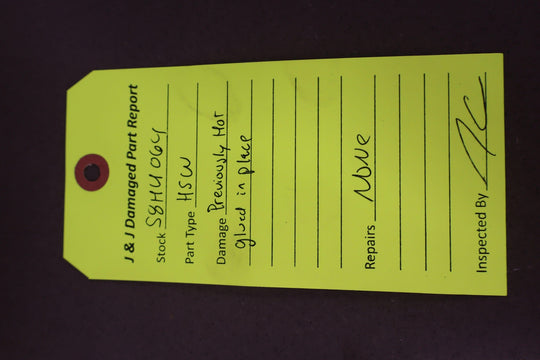 J & J Damaged Part Report
Stock S8H4064
Part Type HSW
Damage Previously Hot
glued in place
Repairs None
Inspected By JC